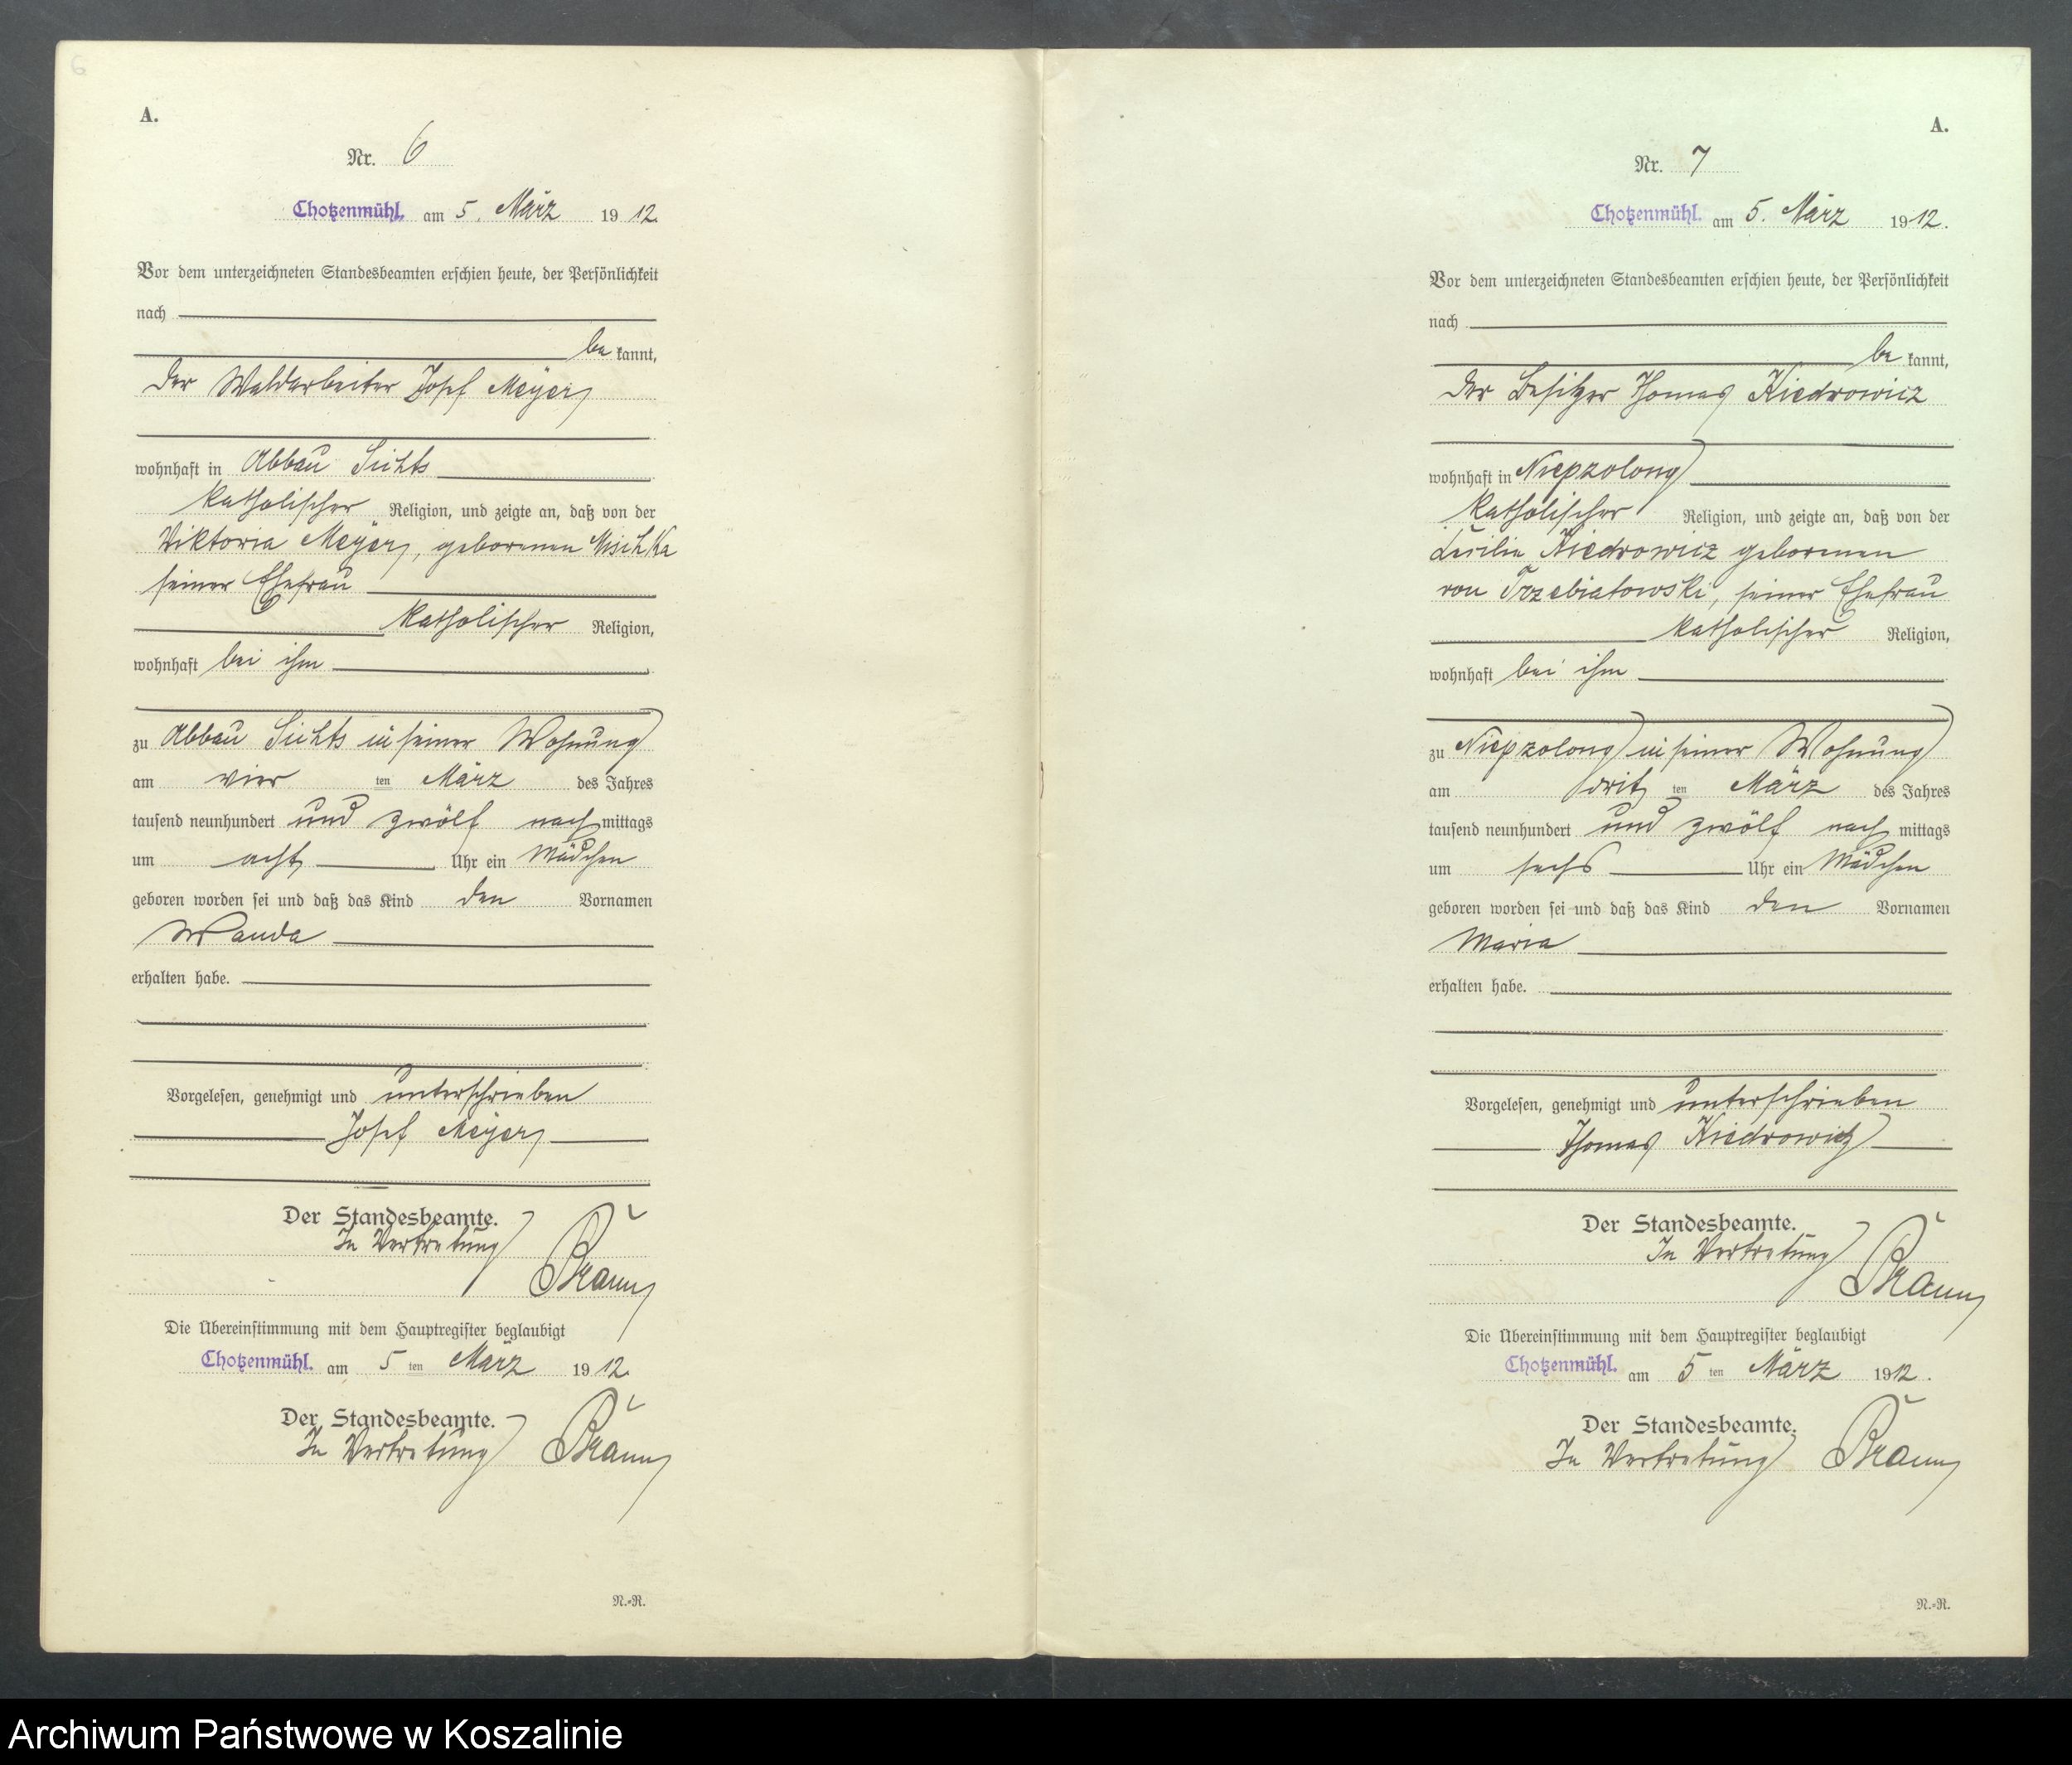 6
A.
Nr. 6
Chotzenmühl. am 5. März 1912.
Vor dem unterzeichneten Standesbeamten erschien heute, der Persönlichkeit
nach
be kannt,
der Waldarbeiter Josef Meyer
wohnhaft in Abbau Sichts
katholischer Religion, und zeigte an, daß von der
Viktoria Meyer, geborenen Mischka
seiner Ehefrau
katholischer Religion,
wohnhaft bei ihm
zu Abbau Sichts in seiner Wohnung
am vier ten März des Jahres
tausend neunhundert und zwölf nach mittags
um acht Uhr ein Mädchen
geboren worden sei und daß das Kind den Vornamen
Wanda
erhalten habe.
Vorgelesen, genehmigt und unterschrieben
Josef Meyer
Der Standesbeamte.
In Vertretung
Braun
Die Übereinstimmung mit dem Hauptregister beglaubigt
Chotzenmühl. am 5 ten März 1912.
Der Standesbeamte.
In Vertretung Braun
N.-R.
A.
Nr. 7
Chotzenmühl. am 5. März 1912.
Vor dem unterzeichneten Standesbeamten erschien heute, der Persönlichkeit
nach
be kannt,
der Besitzer Thomas Kiedrowicz
wohnhaft in Niepzolong
katholischer Religion, und zeigte an, daß von der
Cecilie Kiedrowicz geborenen
von Trzebiatowski, seiner Ehefrau
katholischer Religion,
wohnhaft bei ihm
zu Niepzolong in seiner Wohnung
am drit ten März des Jahres
tausend neunhundert und zwölf nach mittags
um sechs Uhr ein Mädchen
geboren worden sei und daß das Kind den Vornamen
Maria
erhalten habe.
Vorgelesen, genehmigt und unterschrieben
Thomas Kiedrowicz
Der Standesbeamte.
In Vertretung
Braun
Die Übereinstimmung mit dem Hauptregister beglaubigt
Chotzenmühl. am 5 ten März 1912.
Der Standesbeamte.
In Vertretung Braun
N.-R.
Archiwum Państwowe w Koszalinie